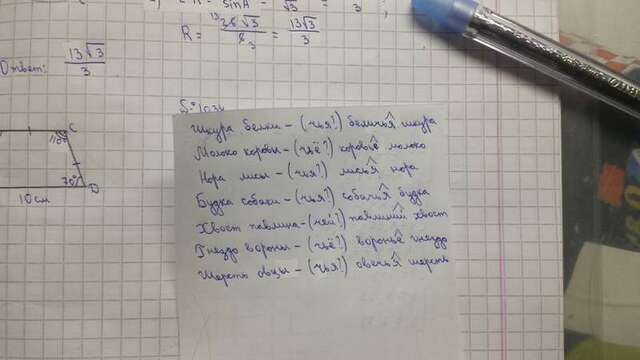 R = 13 26√3 / 2 3 = 13√3 / 3
Ответ: 13√3 / 3
C
110°
70°
D
10см
Шкура белки – (чья?) беличья шкура
Молоко коровы – (чьё?) коровье молоко
Нора лисы – (чья?) лисья нора
Будка собаки – (чья?) собачья будка
Хвост павлина – (чей?) павлиний хвост
Гнездо вороны – (чьё?) воронье гнездо
Шерсть овцы – (чья?) овечья шерсть